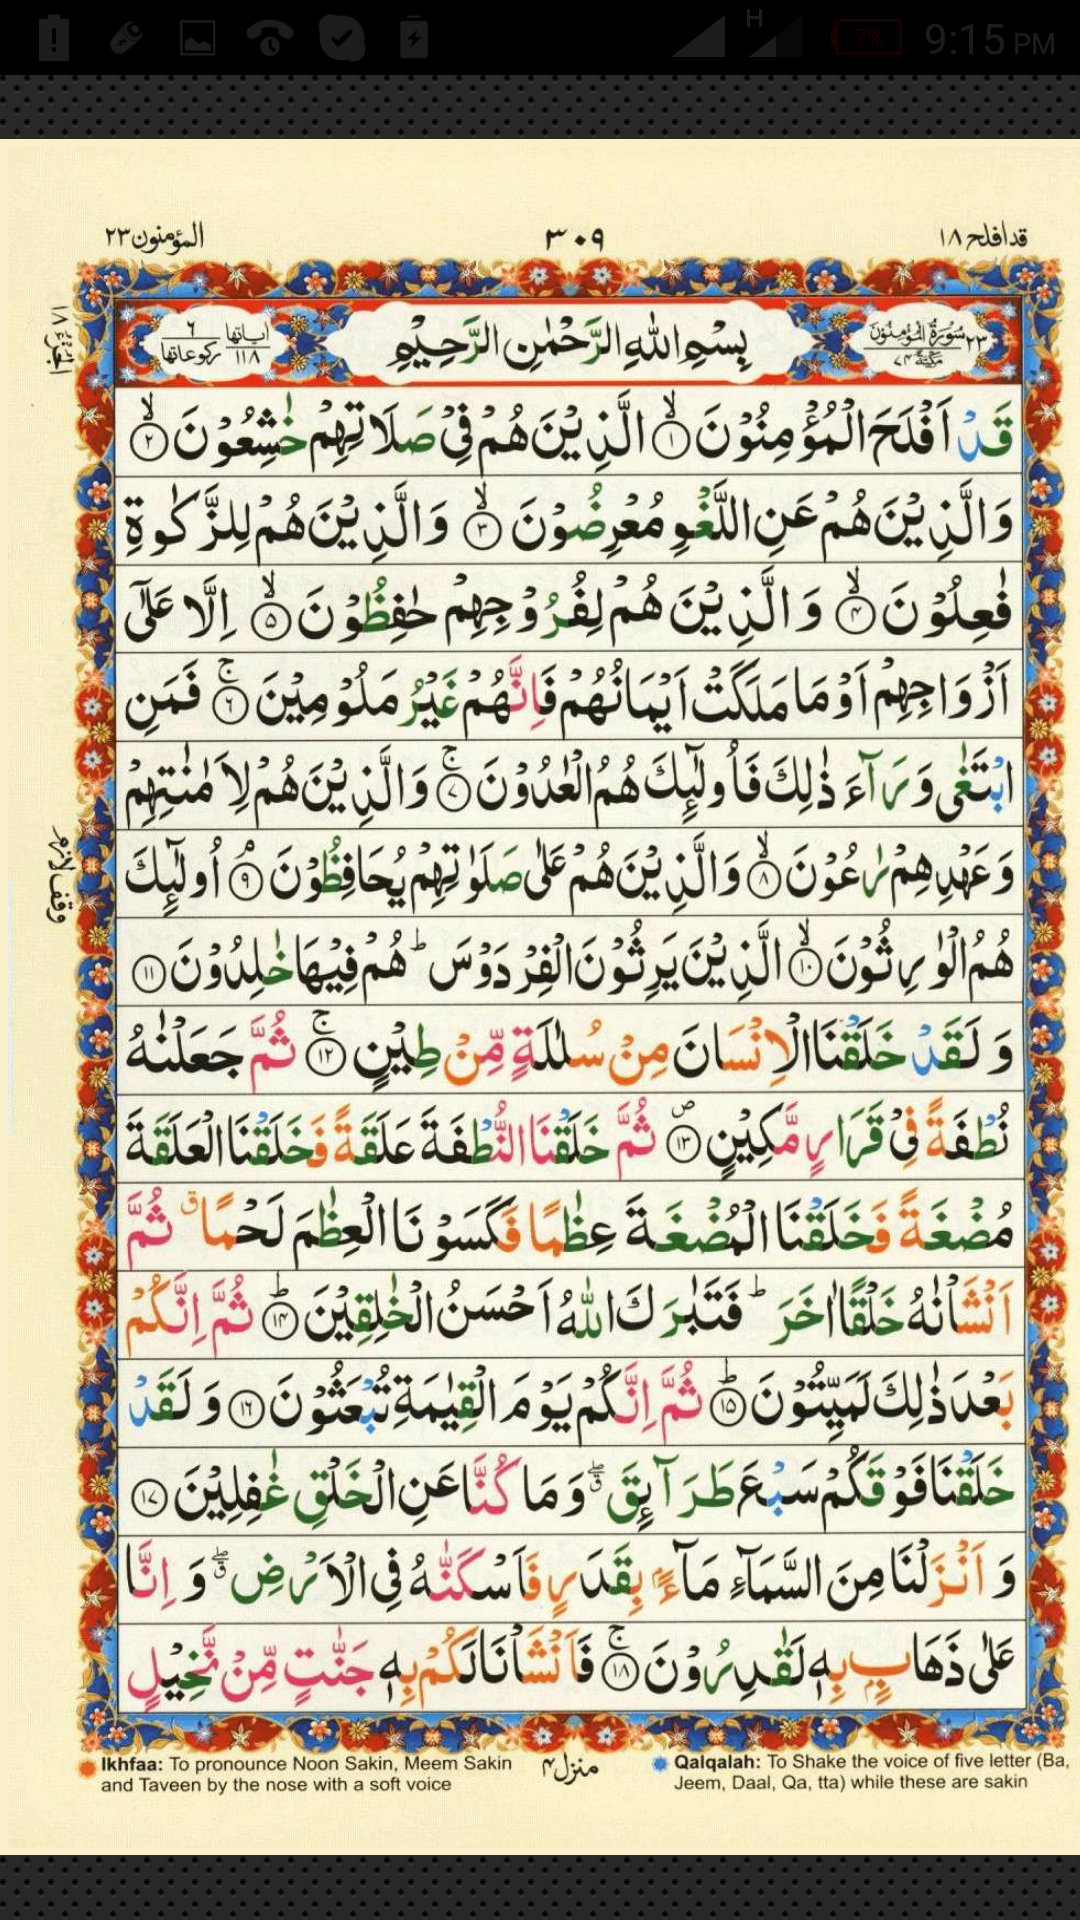 H 7% 9:15 PM
قد افلح ١٨
٣٠٩
المؤمنون ٢٣
٢٣ سُوْرَةُ الْمُؤْمِنُوْنَ مَكِّيَّةٌ ٧٤
بِسْمِ اللهِ الرَّحْمٰنِ الرَّحِيْمِ
اٰیاتها ١١٨ رکوعاتها ٦
قَدْ اَفْلَحَ الْمُؤْمِنُوْنَ ۙ﴿١﴾ الَّذِيْنَ هُمْ فِيْ صَلَاتِهِمْ خٰشِعُوْنَ ۙ﴿٢﴾
وَالَّذِيْنَ هُمْ عَنِ اللَّغْوِ مُعْرِضُوْنَ ۙ﴿٣﴾ وَالَّذِيْنَ هُمْ لِلزَّكٰوةِ
فٰعِلُوْنَ ۙ﴿٤﴾ وَالَّذِيْنَ هُمْ لِفُرُوْجِهِمْ حٰفِظُوْنَ ۙ﴿٥﴾ اِلَّا عَلٰٓى
اَزْوَاجِهِمْ اَوْ مَا مَلَكَتْ اَيْمَانُهُمْ فَاِنَّهُمْ غَيْرُ مَلُوْمِيْنَ ۚ﴿٦﴾ فَمَنِ
ابْتَغٰى وَرَآءَ ذٰلِكَ فَاُولٰٓئِكَ هُمُ الْعٰدُوْنَ ۚ﴿٧﴾ وَالَّذِيْنَ هُمْ لِاَمٰنٰتِهِمْ
وَعَهْدِهِمْ رٰعُوْنَ ۙ﴿٨﴾ وَالَّذِيْنَ هُمْ عَلٰى صَلَوٰتِهِمْ يُحَافِظُوْنَ ۘ﴿٩﴾ اُولٰٓئِكَ
هُمُ الْوٰرِثُوْنَ ۙ﴿١٠﴾ الَّذِيْنَ يَرِثُوْنَ الْفِرْدَوْسَ ؕ هُمْ فِيْهَا خٰلِدُوْنَ ﴿١١﴾
وَلَقَدْ خَلَقْنَا الْاِنْسَانَ مِنْ سُلٰلَةٍ مِّنْ طِيْنٍ ۚ﴿١٢﴾ ثُمَّ جَعَلْنٰهُ
نُطْفَةً فِيْ قَرَارٍ مَّكِيْنٍ ۪﴿١٣﴾ ثُمَّ خَلَقْنَا النُّطْفَةَ عَلَقَةً فَخَلَقْنَا الْعَلَقَةَ
مُضْغَةً فَخَلَقْنَا الْمُضْغَةَ عِظٰمًا فَكَسَوْنَا الْعِظٰمَ لَحْمًا ۗ ثُمَّ
اَنْشَاْنٰهُ خَلْقًا اٰخَرَ ؕ فَتَبٰرَكَ اللّٰهُ اَحْسَنُ الْخٰلِقِيْنَ ؕ﴿١٤﴾ ثُمَّ اِنَّكُمْ
بَعْدَ ذٰلِكَ لَمَيِّتُوْنَ ؕ﴿١٥﴾ ثُمَّ اِنَّكُمْ يَوْمَ الْقِيٰمَةِ تُبْعَثُوْنَ ﴿١٦﴾ وَلَقَدْ
خَلَقْنَا فَوْقَكُمْ سَبْعَ طَرَآئِقَ ۖ وَمَا كُنَّا عَنِ الْخَلْقِ غٰفِلِيْنَ ﴿١٧﴾
وَاَنْزَلْنَا مِنَ السَّمَآءِ مَآءًۢ بِقَدَرٍ فَاَسْكَنّٰهُ فِي الْاَرْضِ ۖ وَاِنَّا
عَلٰى ذَهَابٍۭ بِهٖ لَقٰدِرُوْنَ ۚ﴿١٨﴾ فَاَنْشَاْنَا لَكُمْ بِهٖ جَنّٰتٍ مِّنْ نَّخِيْلٍ
وقف لازم
Ikhfaa: To pronounce Noon Sakin, Meem Sakin
and Taveen by the nose with a soft voice
منزل ٤
Qalqalah: To Shake the voice of five letter (Ba,
Jeem, Daal, Qa, tta) while these are sakin